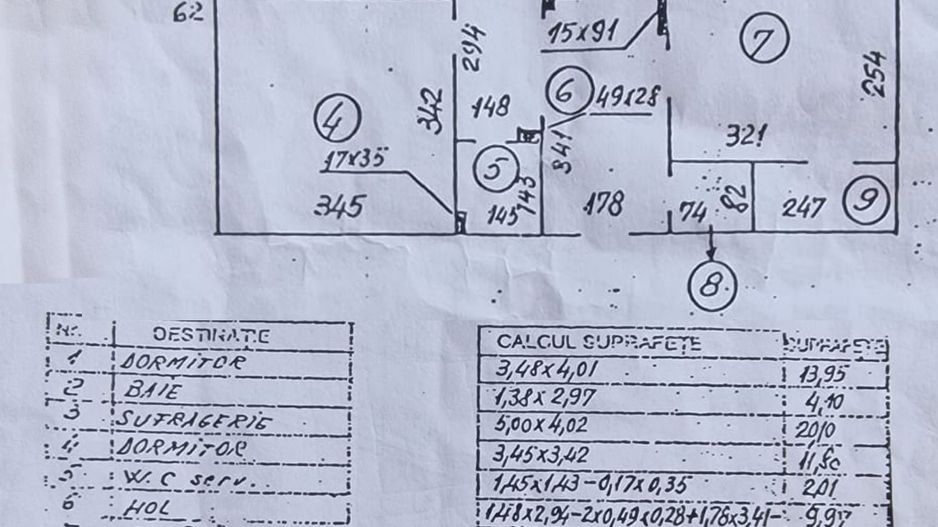 62
15x91
7
294
254
342
148
6
49x28
4
321
17x35
341
5
143
82
9
345
145
178
74
247
8
Nr. DESTINATIE
1 DORMITOR
2 BAIE
3 SUFRAGERIE
4 DORMITOR
5 W.C serv.
6 HOL
CALCUL SUPRAFETE SUPRAFETE
3,48x4,01 13,95
1,38x2,97 4,10
5,00x4,02 20,10
3,45x3,42
1,45x1,43-0,17x0,35 2,01
1,48x2,94-2x0,49x0,28+1,76x3,41-